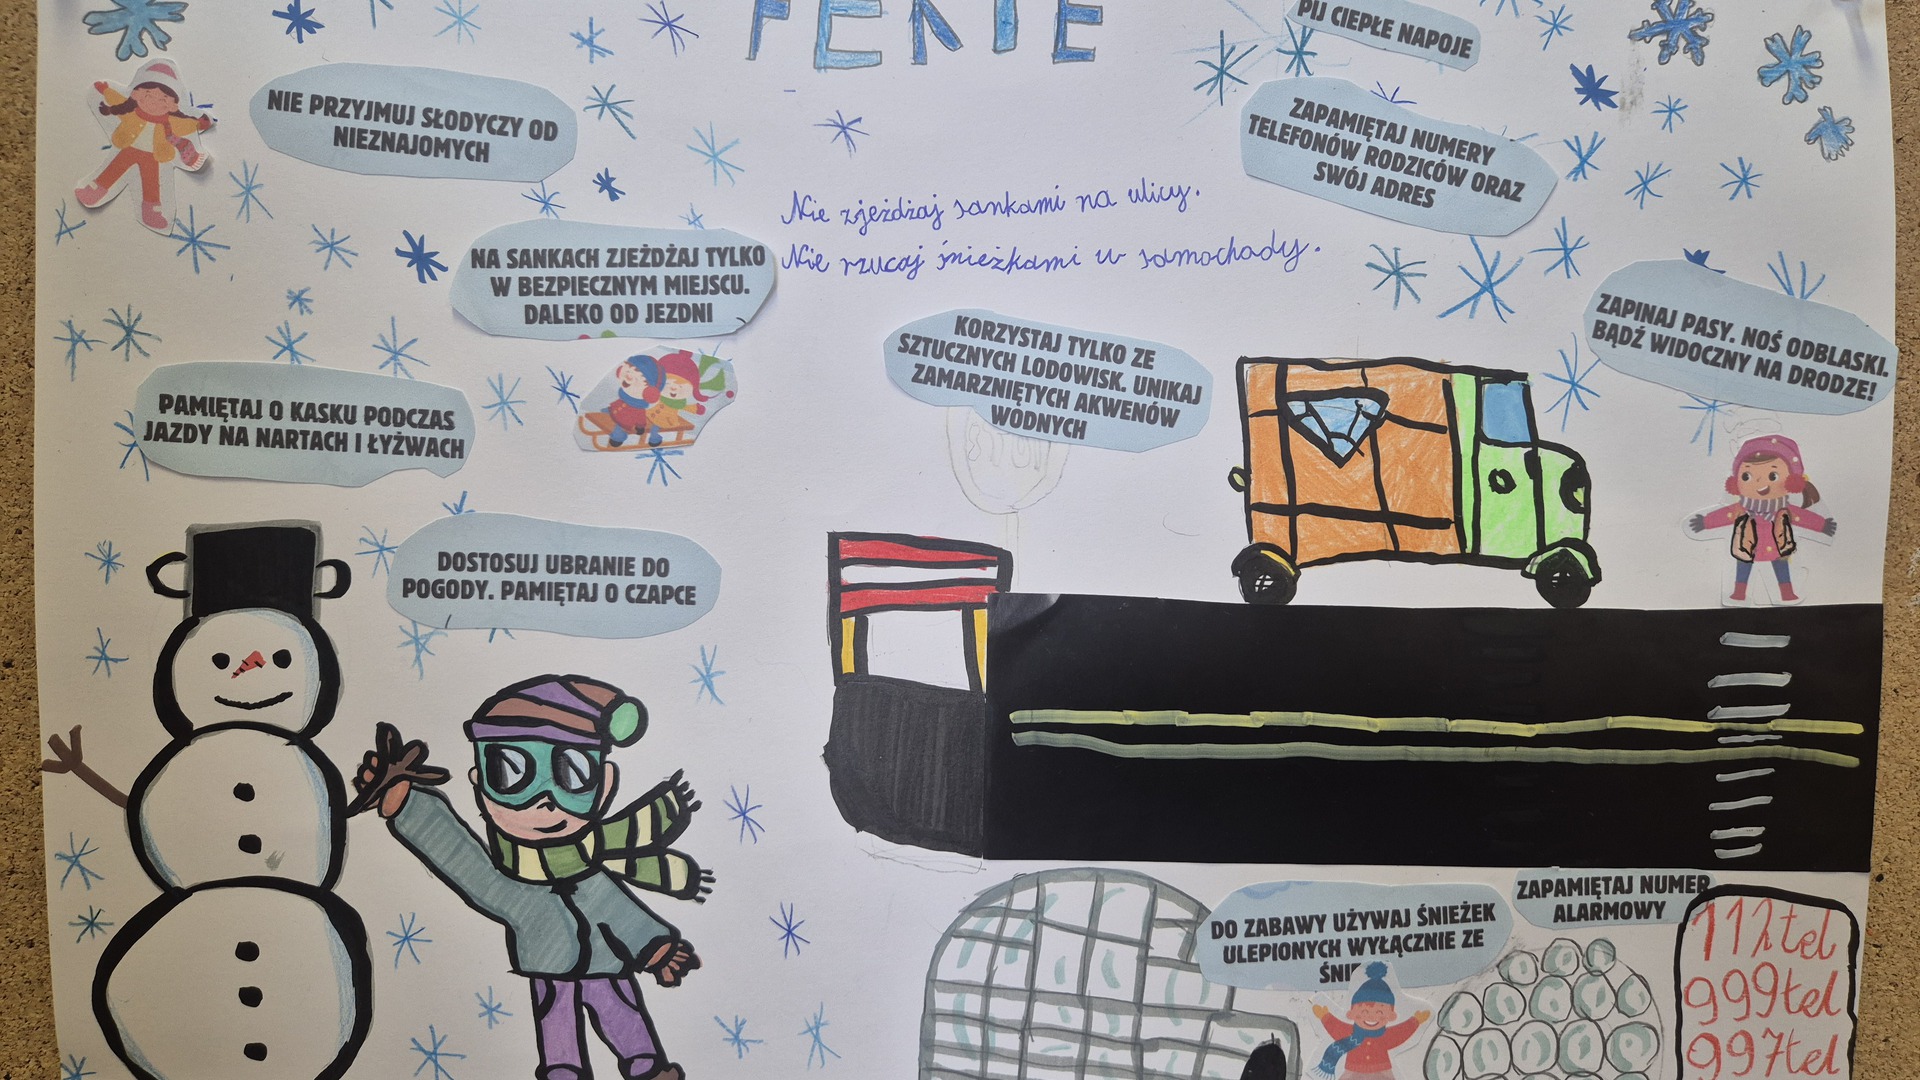 FERIE
PIJ CIEPŁE NAPOJE
NIE PRZYJMUJ SŁODYCZY OD
NIEZNAJOMYCH
ZAPAMIĘTAJ NUMERY
TELEFONÓW RODZICÓW ORAZ
SWÓJ ADRES
Nie zjeżdżaj sankami na ulicy.
Nie rzucaj śnieżkami w samochady.
NA SANKACH ZJEŻDŻAJ TYLKO
W BEZPIECZNYM MIEJSCU.
DALEKO OD JEZDNI
ZAPINAJ PASY. NOŚ ODBLASKI.
BĄDŹ WIDOCZNY NA DRODZE!
KORZYSTAJ TYLKO ZE
SZTUCZNYCH LODOWISK. UNIKAJ
ZAMARZNIĘTYCH AKWENÓW
WODNYCH
PAMIĘTAJ O KASKU PODCZAS
JAZDY NA NARTACH I ŁYŻWACH
STOP
DOSTOSUJ UBRANIE DO
POGODY. PAMIĘTAJ O CZAPCE
ZAPAMIĘTAJ NUMER
ALARMOWY
DO ZABAWY UŻYWAJ ŚNIEŻEK
ULEPIONYCH WYŁĄCZNIE ZE
112 tel
999 tel
997 tel